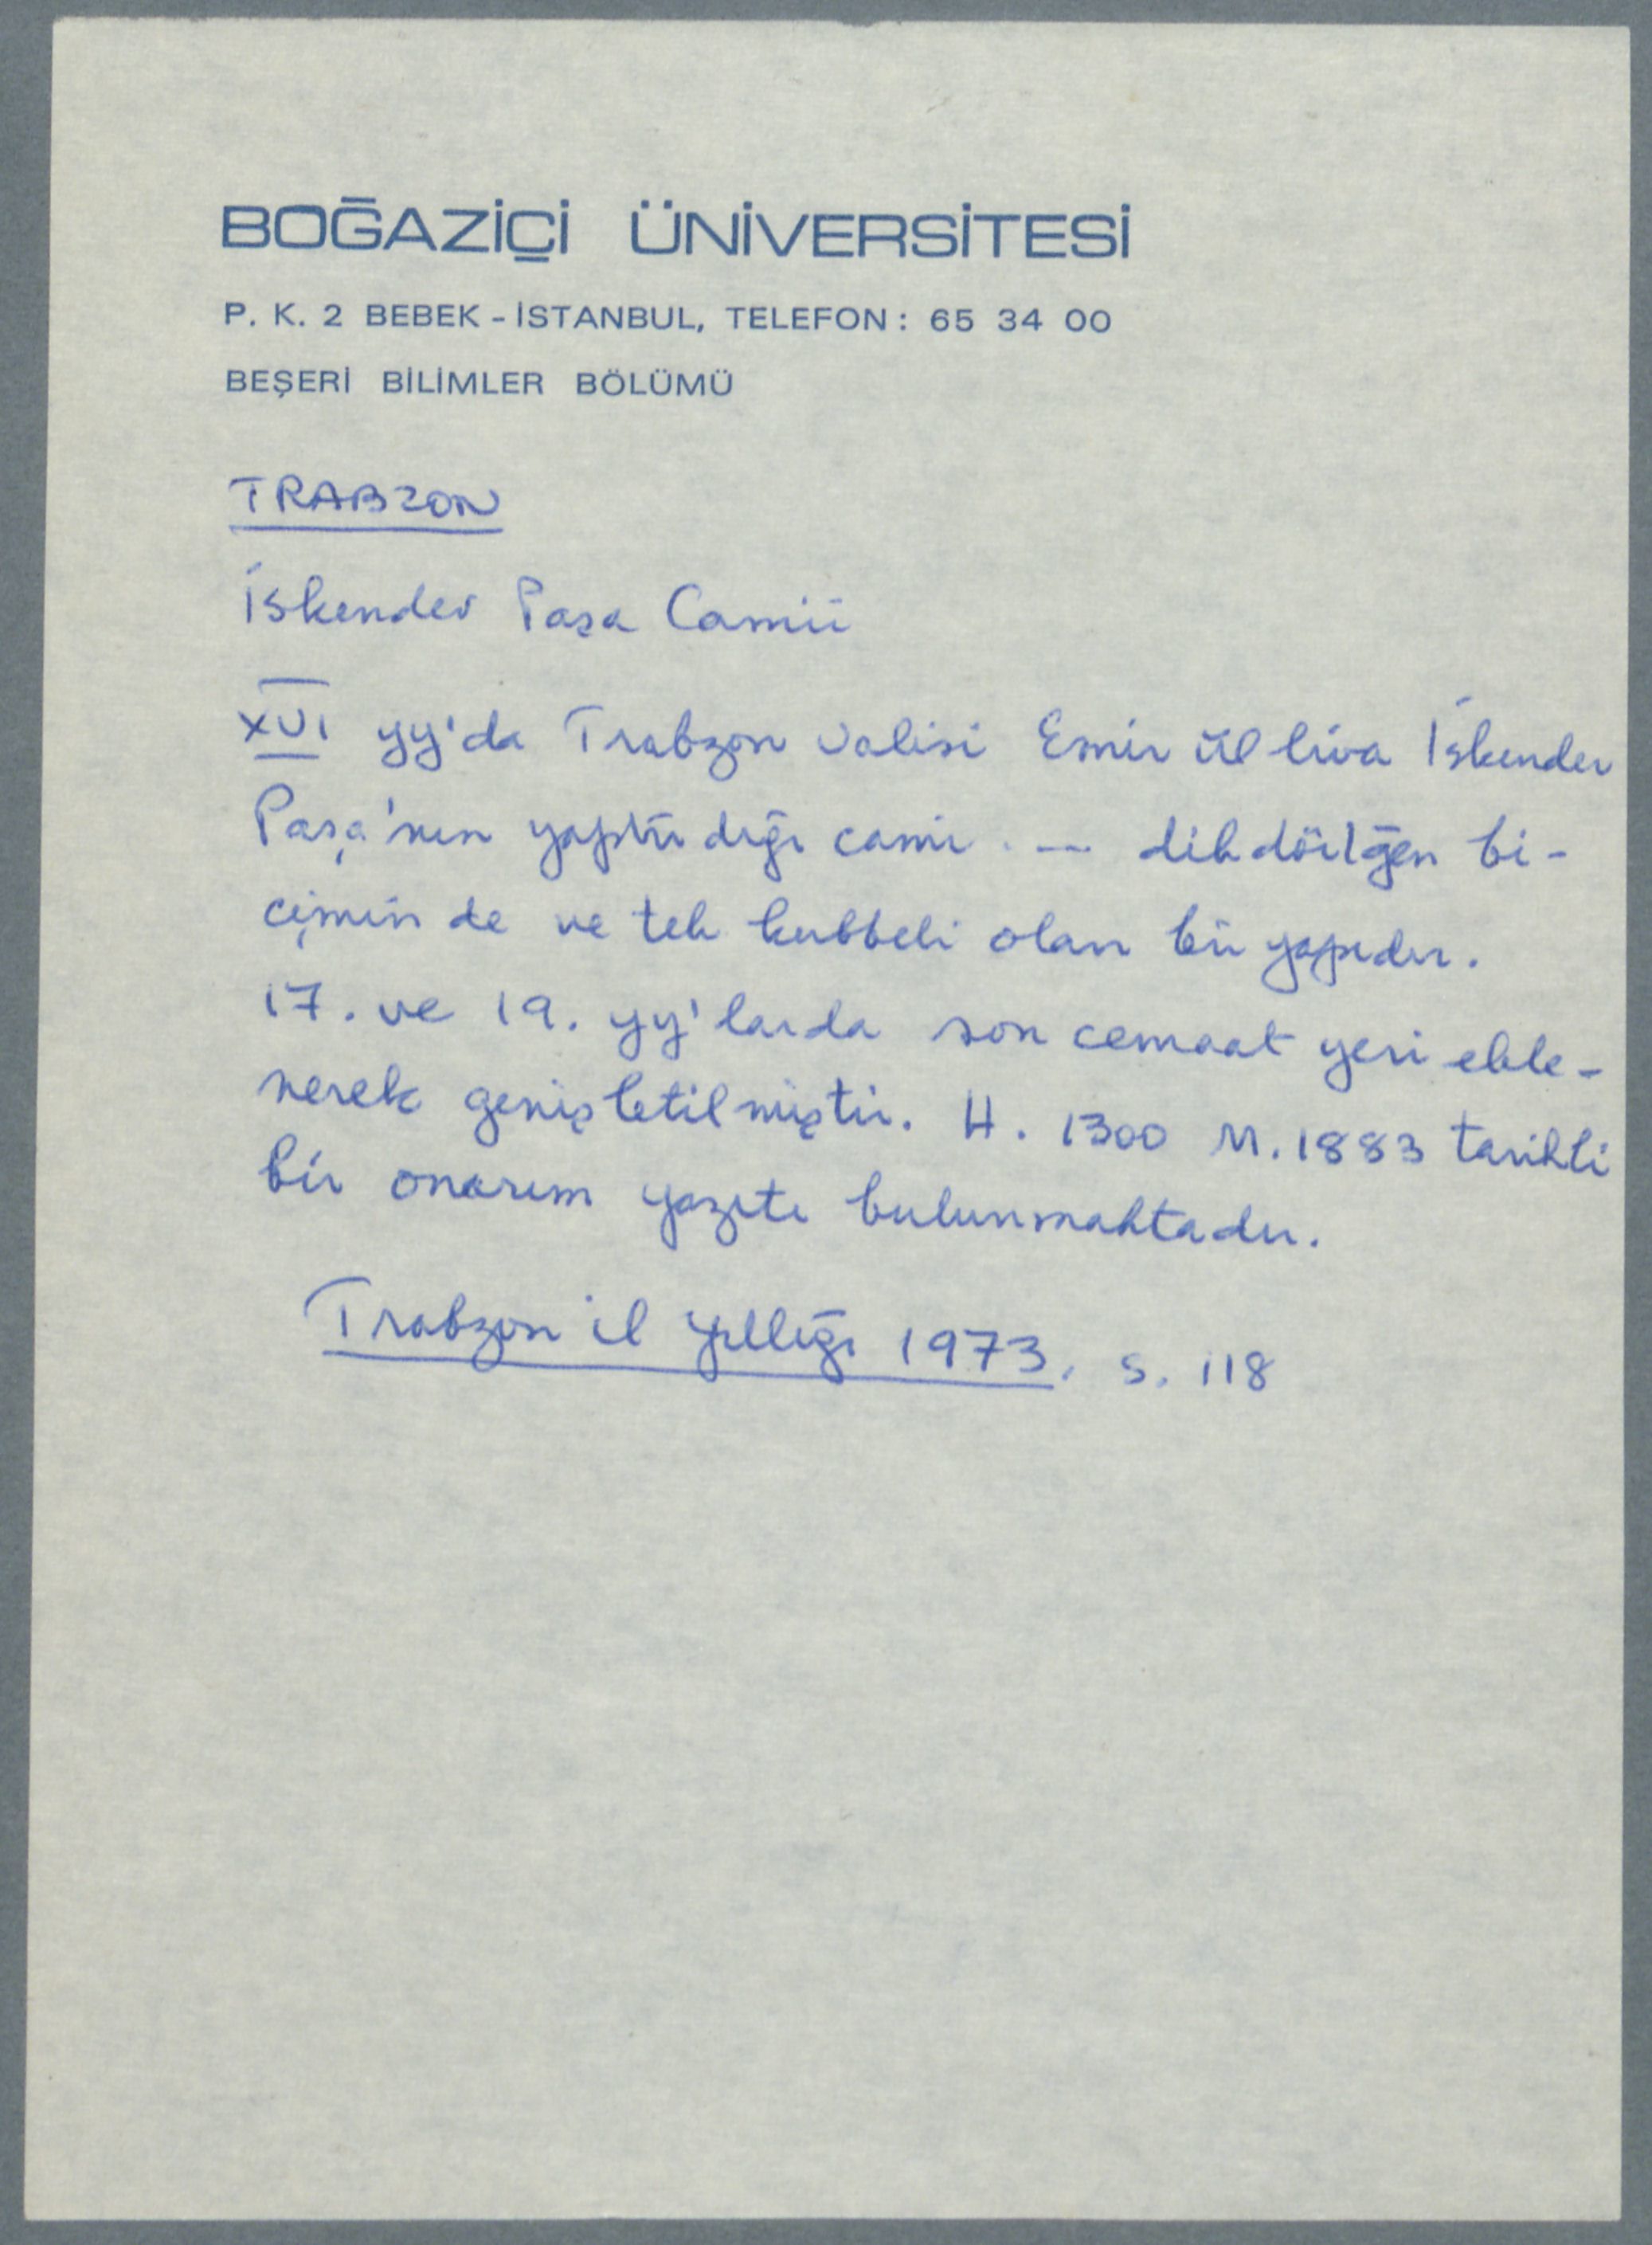 BOĞAZİÇİ ÜNİVERSİTESİ
P. K. 2 BEBEK - İSTANBUL, TELEFON : 65 34 00
BEŞERİ BİLİMLER BÖLÜMÜ
TRABZON
İskender Paşa Camii
XVI yy'da Trabzon valisi Emir ül liva İskender
Paşa'nın yaptırdığı cami . -- dikdörtgen bi-
çiminde ve tek kubbeli olan bir yapıdır.
17. ve 19. yy'larda son cemaat yeri ekle-
nerek genişletilmiştir. H. 1300 M. 1883 tarihli
bir onarım yazıtı bulunmaktadır.
Trabzon il yıllığı 1973, s. 118